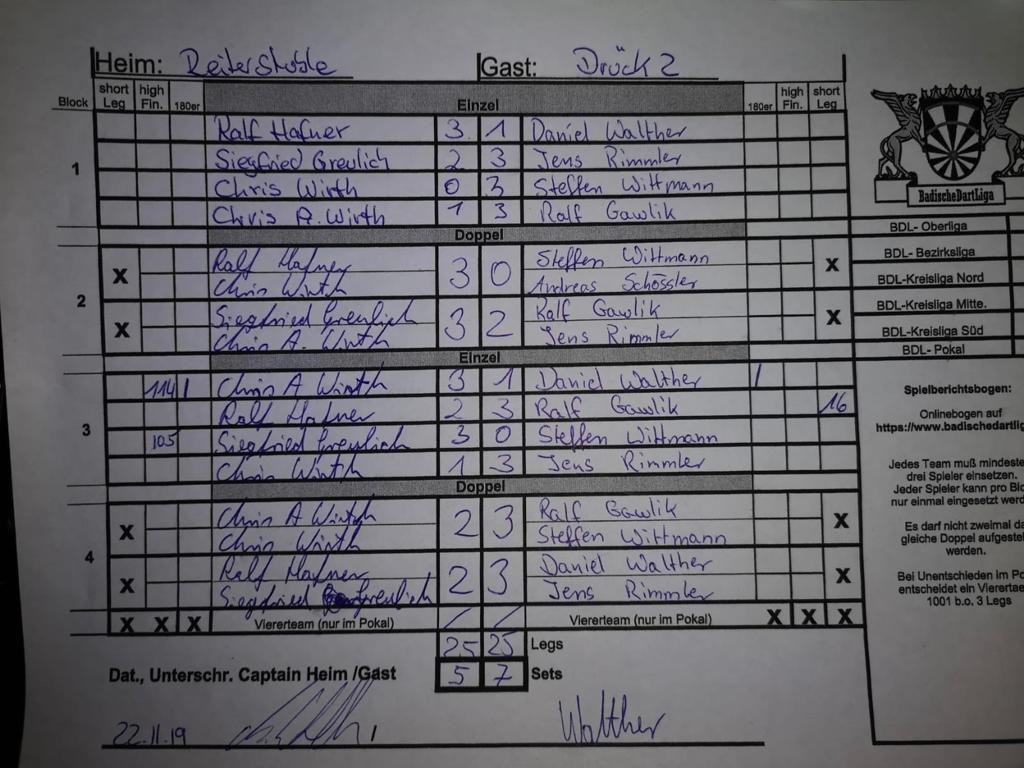 Heim: Reiterstuble Gast: Drück 2
Block short Leg high Fin. 180er Einzel 180er high Fin. short Leg
1
Ralf Hafner 3 1 Daniel Walther
Siegfried Greulich 2 3 Jens Rimmler
Chris Wirth 0 3 Steffen Wittmann
Chris A. Wirth 1 3 Ralf Gawlik
Doppel
2
X Ralf Hafner 3 0 Steffen Wittmann X
Chris Wirth Andreas Schössler
X Siegfried Greulich 3 2 Ralf Gawlik X
Chris A. Wirth Jens Rimmler
Einzel
3
114 1 Chris A Wirth 3 1 Daniel Walther 1
Ralf Hafner 2 3 Ralf Gawlik 16
105 Siegfried Greulich 3 0 Steffen Wittmann
Chris Wirth 1 3 Jens Rimmler
Doppel
4
X Chris A Wirth 2 3 Ralf Gawlik X
Chris Wirth Steffen Wittmann
X Ralf Hafner 2 3 Daniel Walther X
Siegfried Greulich Jens Rimmler
X X X Viererteam (nur im Pokal) / / Viererteam (nur im Pokal) X X X
25 25 Legs
Dat., Unterschr. Captain Heim /Gast 5 7 Sets
22.11.19 Walther
BadischeDartLiga
BDL- Oberliga
BDL- Bezirksliga
BDL-Kreisliga Nord
BDL-Kreisliga Mitte.
BDL-Kreisliga Süd
BDL- Pokal
Spielberichtsbogen:
Onlinebogen auf
https://www.badischedartlig
Jedes Team muß mindeste
drei Spieler einsetzen.
Jeder Spieler kann pro Blo
nur einmal eingesetzt werd
Es darf nicht zweimal da
gleiche Doppel aufgestel
werden.
Bei Unentschieden im Po
entscheidet ein Vierertea
1001 b.o. 3 Legs